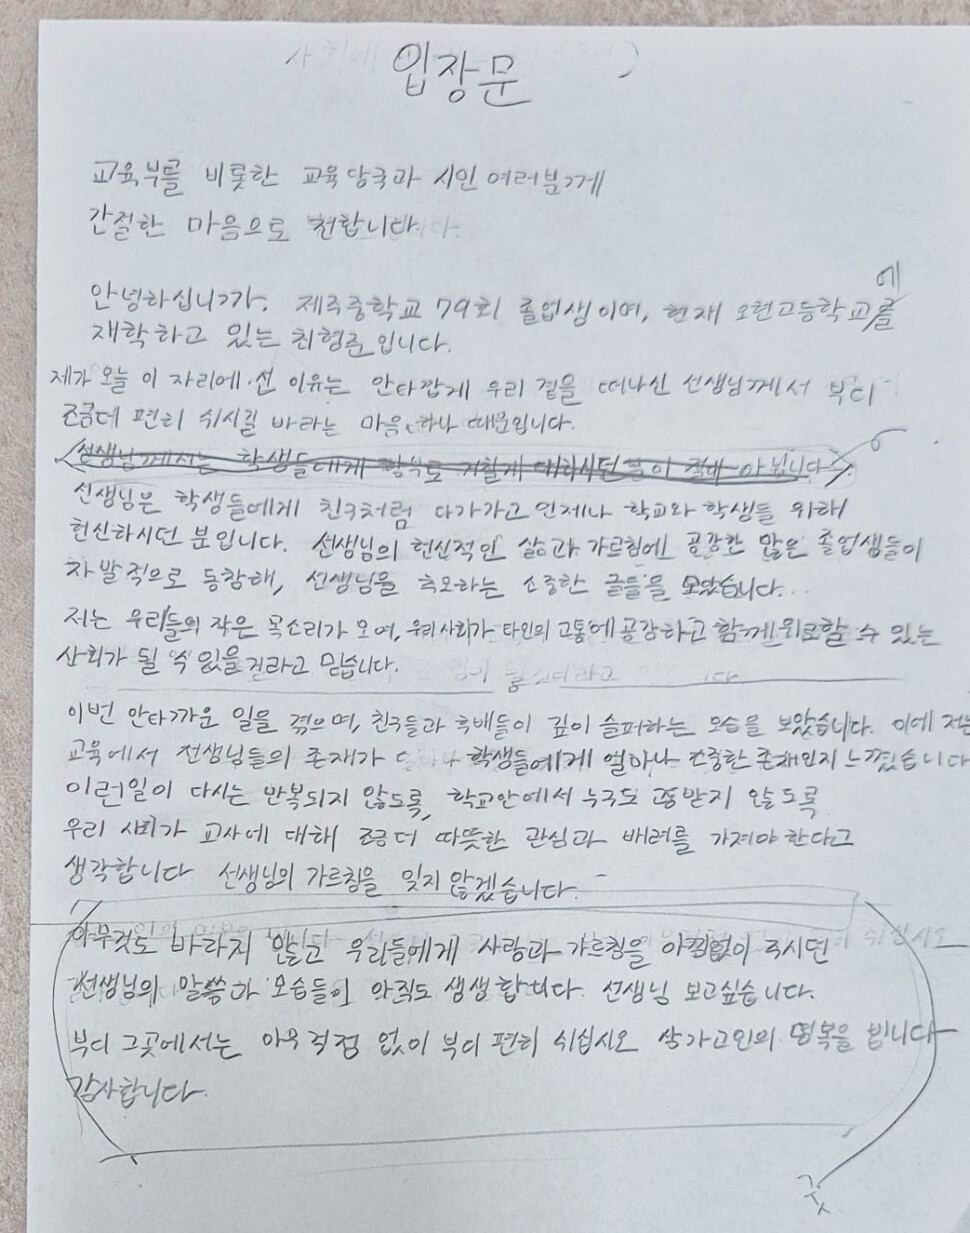 입장문
교육부를 비롯한 교육당국과 시민 여러분께
간절한 마음으로 전합니다.
에
안녕하십니까. 제주중학교 79회 졸업생이며, 현재 오현고등학교를
재학하고 있는 최형준입니다.
제가 오늘 이 자리에 선 이유는 안타깝게 우리 곁을 떠나신 선생님께서 부디
조금더 편히 쉬시길 바라는 마음 하나 때문입니다.
선생님께서는 학생들에게 함부로 거칠게 대하시던 분이 절대 아닙니다
선생님은 학생들에게 친구처럼 다가가고 언제나 학교와 학생들 위해
헌신하시던 분입니다. 선생님의 헌신적인 삶과 가르침에 공감한 많은 졸업생들이
자발적으로 동참해, 선생님을 추모하는 소중한 글들을 모았습니다.
저는 우리들의 작은 목소리가 모여, 우리 사회가 타인의 고통에 공감하고 함께 위로할 수 있는
사회가 될 수 있을거라고 믿습니다.
이번 안타까운 일을 겪으며, 친구들과 후배들이 깊이 슬퍼하는 모습을 보았습니다. 이에 저는
교육에서 선생님들의 존재가 학생들에게 얼마나 소중한 존재인지 느꼈습니다
이런일이 다시는 반복되지 않도록, 학교안에서 누구도 고통받지 않도록
우리 사회가 교사에 대해 조금 더 따뜻한 관심과 배려를 가져야 한다고
생각합니다 선생님의 가르침을 잊지 않겠습니다.
아무것도 바라지 않고 우리들에게 사랑과 가르침을 아낌없이 주시던
선생님의 말씀과 모습들이 아직도 생생합니다. 선생님 보고싶습니다.
부디 그곳에서는 아무 걱정 없이 부디 편히 쉬십시오 삼가고인의 명복을 빕니다
감사합니다.
끗